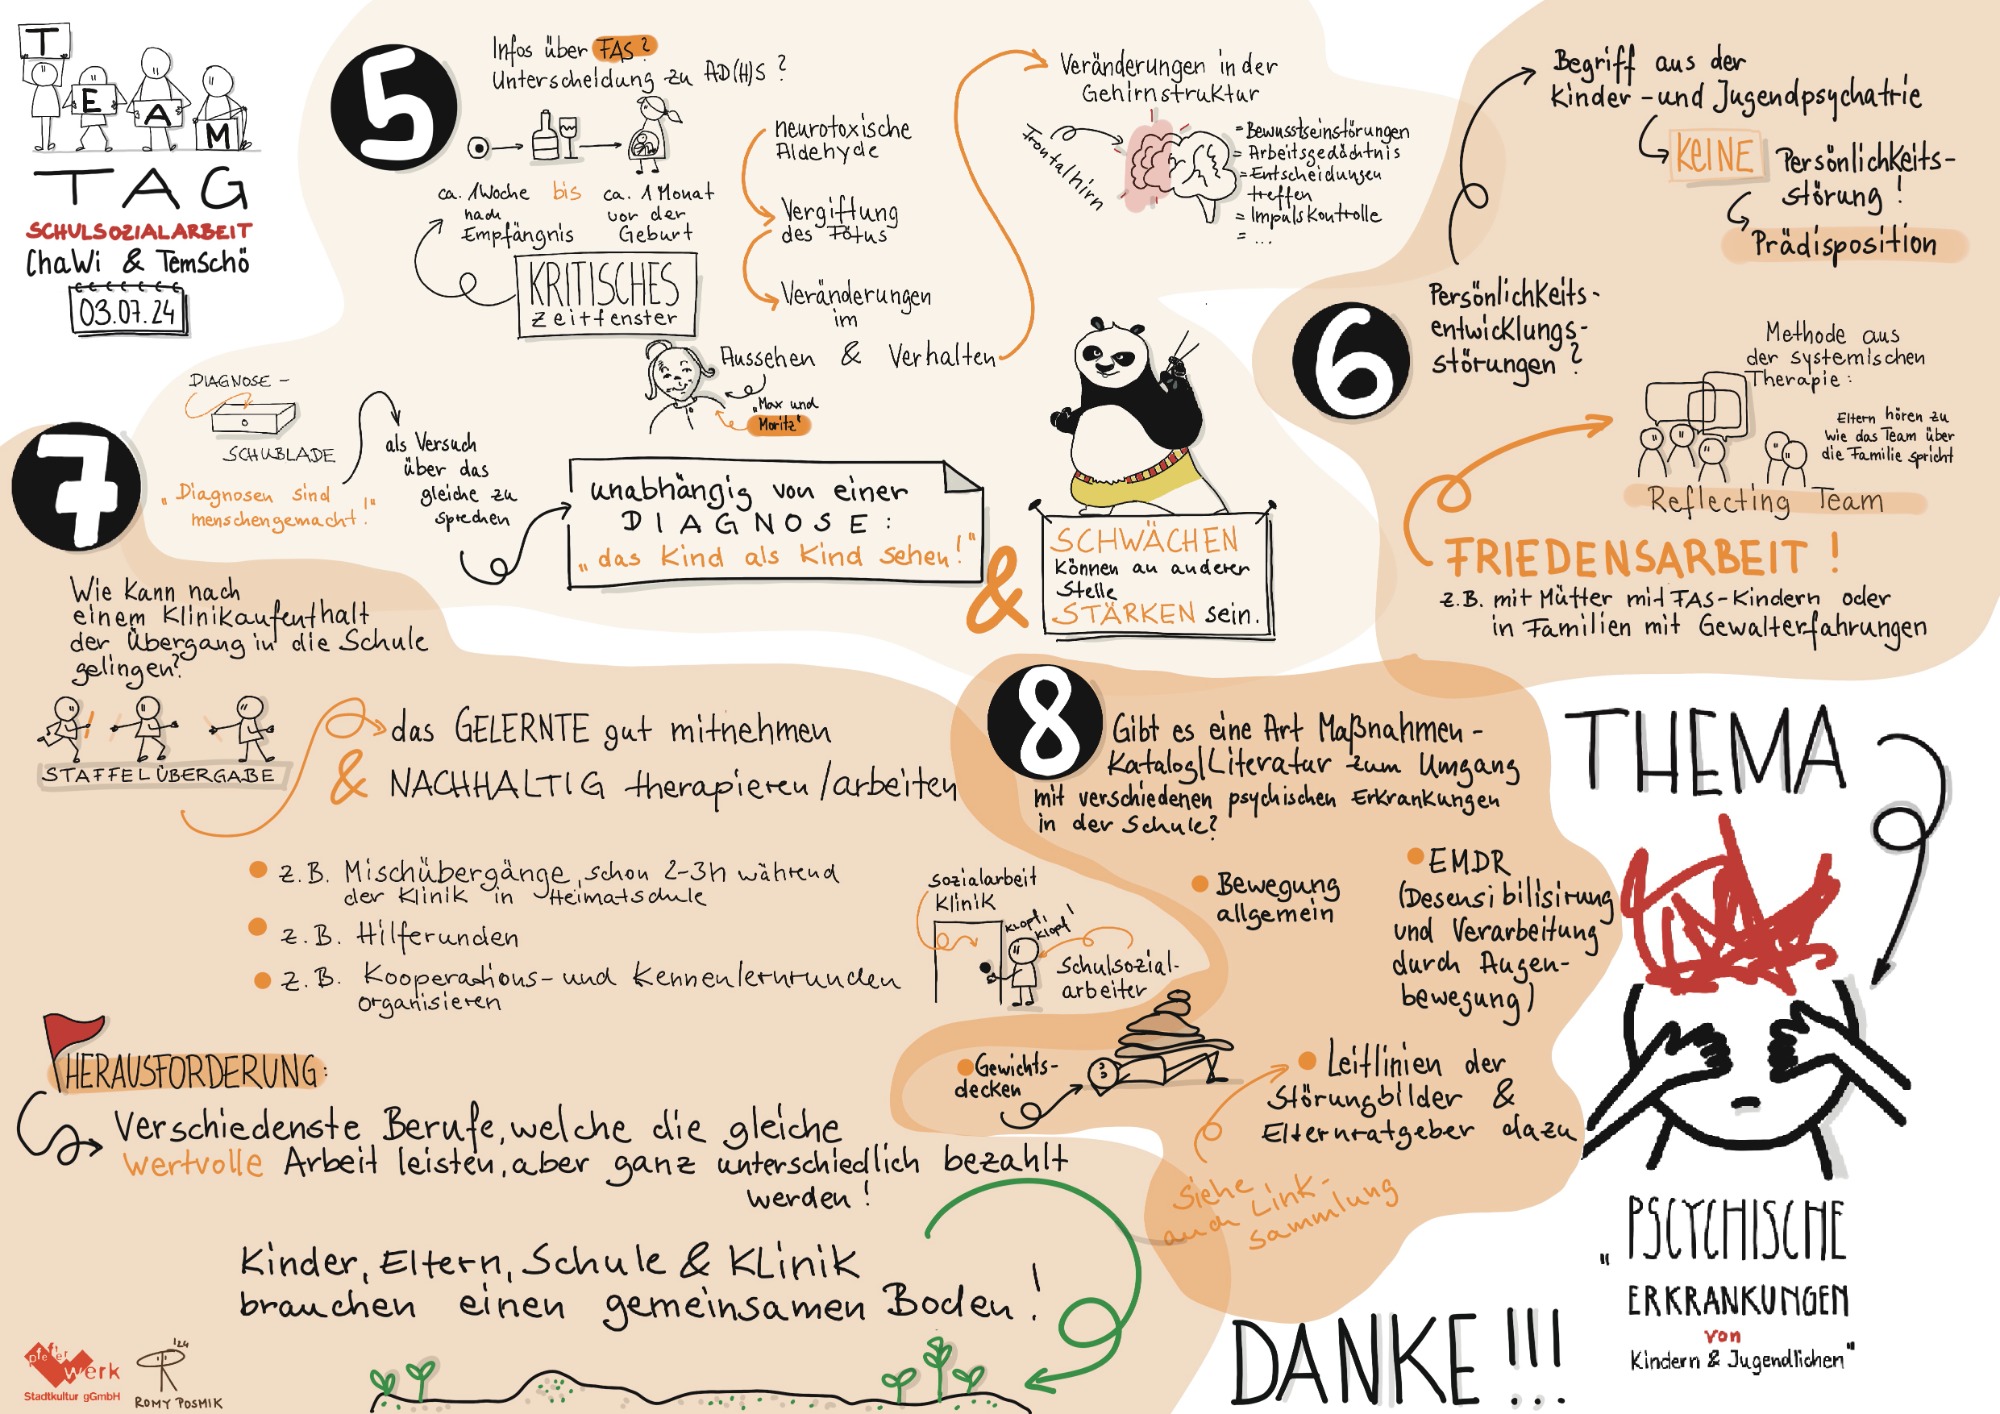 T
E
A
M
TAG
SCHULSOZIALARBEIT
ChaWi & TemSchö
03.07.24
5
Infos über FAS?
Unterscheidung zu AD(H)S?
ca. 1 Woche
nach
Empfängnis
bis
ca. 1 Monat
vor der
Geburt
KRITISCHES
Zeitfenster
neurotoxische
Aldehyde
Vergiftung
des Fötus
Veränderungen
im
Aussehen & Verhalten
"Max und
Moritz"
Veränderungen in der
Gehirnstruktur
Frontalhirn
= Bewusstseinstörungen
= Arbeitsgedächtnis
= Entscheidungen
treffen
= Impulskontrolle
= ...
DIAGNOSE-
SCHUBLADE
"Diagnosen sind
menschengemacht!"
als Versuch
über das
gleiche zu
sprechen
unabhängig von einer
DIAGNOSE:
"das Kind als Kind sehen!"
&
SCHWÄCHEN
können an anderer
Stelle
STÄRKEN sein.
6
Persönlichkeits-
entwicklungs-
störungen?
Begriff aus der
Kinder-und Jugendpsychatrie
KEINE Persönlichkeits-
störung!
Prädisposition
Methode aus
der systemischen
Therapie:
Eltern hören zu
wie das Team über
die Familie spricht
Reflecting Team
FRIEDENSARBEIT!
z.B. mit Mütter mit FAS-Kindern oder
in Familien mit Gewalterfahrungen
7
Wie kann nach
einem Klinikaufenthalt
der Übergang in die Schule
gelingen?
STAFFELÜBERGABE
das GELERNTE gut mitnehmen
& NACHHALTIG therapieren/arbeiten
z.B. Mischübergänge, schon 2-3h während
der Klinik in Heimatschule
z.B. Hilferunden
z.B. Kooperations-und Kennenlernrunden
organisieren
Sozialarbeit
Klinik
klopf,
klopf!
Schulsozial-
arbeiter
HERAUSFORDERUNG:
Verschiedenste Berufe, welche die gleiche
wertvolle Arbeit leisten, aber ganz unterschiedlich bezahlt
werden!
Kinder, Eltern, Schule & Klinik
brauchen einen gemeinsamen Boden!
8
Gibt es eine Art Maßnahmen-
Katalog/Literatur zum Umgang
mit verschiedenen psychischen Erkrankungen
in der Schule?
Bewegung
allgemein
EMDR
(Desensibilisirung
und Verarbeitung
durch Augen-
bewegung)
Gewichts-
decken
Leitlinien der
Störungbilder &
Elternratgeber dazu
siehe
auch Link-
sammlung
THEMA
"PSCYCHISCHE
ERKRANKUNGEN
von
Kindern & Jugendlichen"
DANKE!!!
pfefferwerk
Stadtkultur gGmbH
'24
ROMY POSMIK